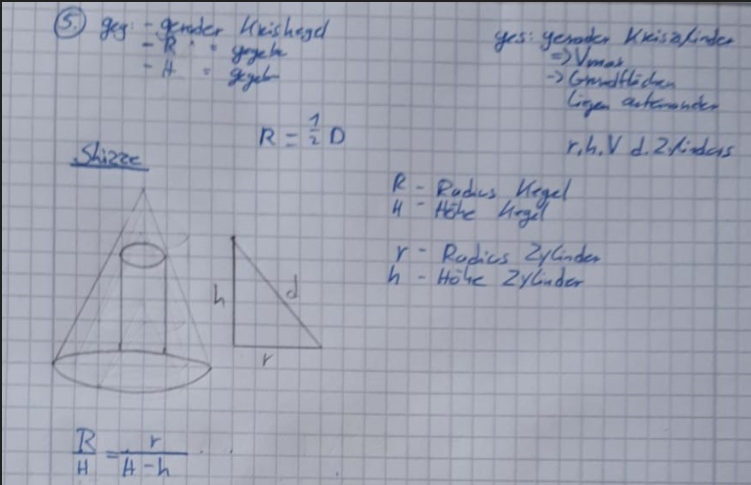 5. geg: - gerader Kreiskegel
- R " " gegeben
- H " gegeben
ges: gerader Kreiszylinder
=> Vmax
-> Grundflächen
liegen aufeinander
R = 1/2 D
r, h, V d. Zylinders
Skizze
R - Radius Kegel
H - Höhe Kegel
r - Radius Zylinder
h - Höhe Zylinder
h
d
r
R/H = r/(H - h)